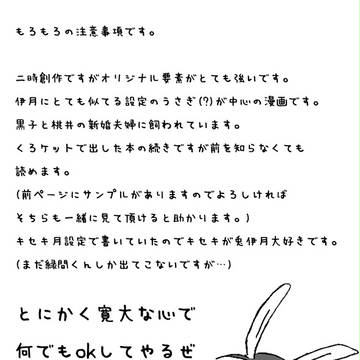 もろもろの注意事項です。
二時創作ですがオリジナル要素がとても強いです。
伊月にとても似てる設定のうさぎ(?)が中心の漫画です。
黒子と桃井の新婚夫婦に飼われています。
くろケットで出した本の続きですが前を知らなくても
読めます。
(前ページにサンプルがありますのでよろしければ
そちらも一緒に見て頂けると助かります。)
キセキ月設定で書いていたのでキセキが兎伊月大好きです。
(まだ緑間くんしか出てこないですが…)
とにかく寛大な心で
何でもokしてやるぜ